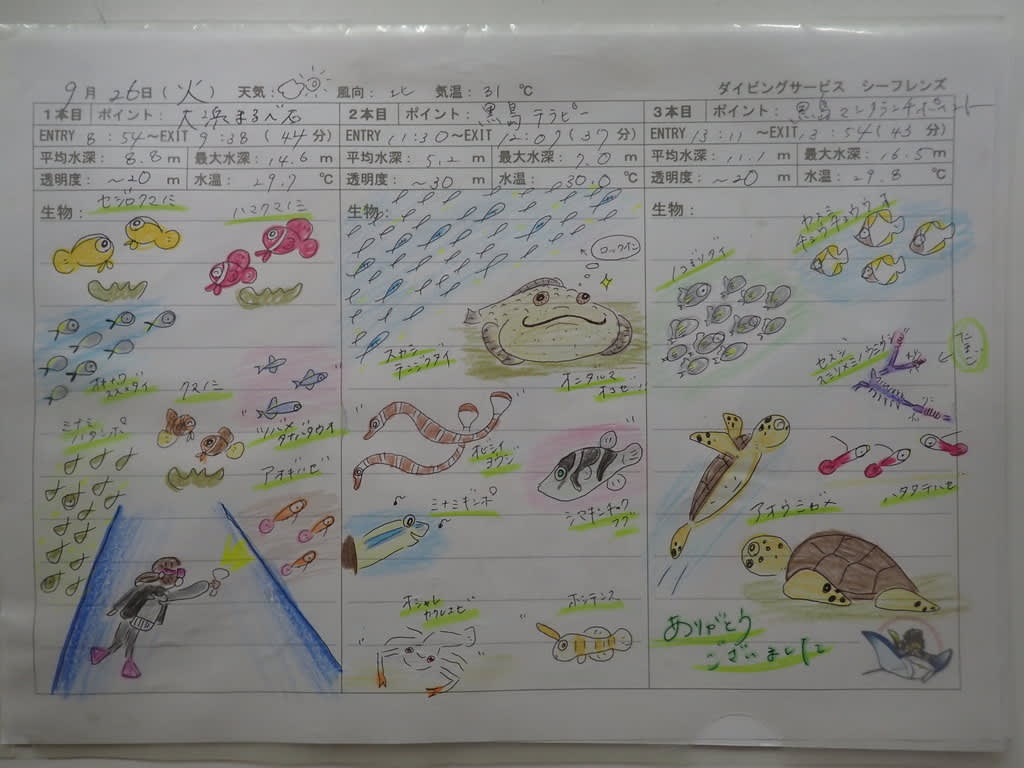 9月 26日(火) 天気: 風向: 北 気温: 31 ℃ ダイビングサービス シーフレンズ
1本目 ポイント:
ENTRY 8:54~EXIT 9:38 (44分)
平均水深: 8.8 m 最大水深: 14.6 m
透明度: ~20 m 水温: 29.7 ℃
生物:
セジロクマノミ
ハマクマノミ
クマノミ
ツバメタナバタウオ
アオギハゼ
2本目 ポイント: 黒島
ENTRY 11:30~EXIT 12:07 (37分)
平均水深: 5.2 m 最大水深: 7.0 m
透明度: ~30 m 水温: 30.0 ℃
生物:
ロックイン
スカシ
テンジクダイ
オニダルマ
オコゼ
オビイシ
ヨウジ
ミナミギンポ
シマキンチャク
フグ
オシャレ
カクレエビ
ホシテンス
3本目 ポイント: 黒島
ENTRY 13:11 ~EXIT 13:54 (43分)
平均水深: 11.1 m 最大水深: 16.5 m
透明度: ~20 m 水温: 29.8 ℃
生物:
ノコギリダイ
チョウチョウウオ
アオウミガメ
ハタタテハゼ
ありがとう
ございました